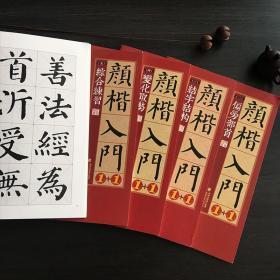 善法經為
首沂受無
顔楷入門
綜合練習
1+1
顔楷入門
變化取勢
1+1
顔楷入門
結字結构
1+1
顔楷入門
偏旁部首
1+1